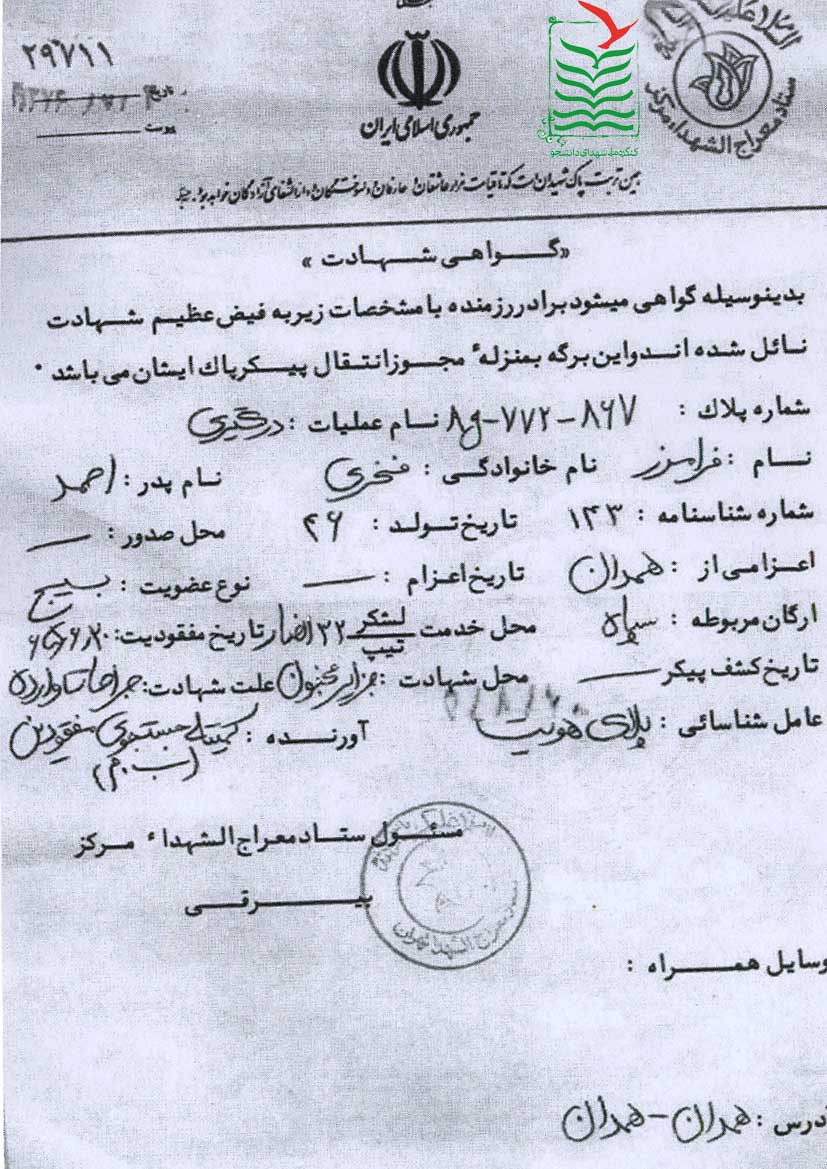 ۲۹۷۱۱
تاریخ
پیوست
جمهوری اسلامی ایران
کنگره ملی شهدای دانشجو
ستاد معراج الشهداء مرکز
همین تربت پاک شهیدان است که تا قیامت مزار عاشقان و عارفان و دلسوختگان و دارالشفای آزادگان خواهد بود.
«گواهی شهادت»
بدینوسیله گواهی میشود برادر رزمنده با مشخصات زیر به فیض عظیم شهادت
نائل شده اند و این برگه بمنزله ٔ مجوز انتقال پیکر پاک ایشان می باشد ۰
شماره پلاک : ۸۶۷-۷۷۲-Ag نام عملیات : درگیری
نام : فرامرز نام خانوادگی : فخری نام پدر : احمد
شماره شناسنامه : ۱۴۳ تاریخ تولد : ۴۶ محل صدور : —
اعزامی از : همدان تاریخ اعزام : — نوع عضویت : بسیج
ارگان مربوطه : سپاه محل خدمت لشکر تیپ ۳۲ انصار تاریخ مفقودیت :
تاریخ کشف پیکر — محل شهادت : جزایر مجنون علت شهادت : جراحات وارده
عامل شناسائی : پلاک هویت آورنده : کمیته جستجوی مفقودین
مسئول ستاد معراج الشهداء مرکز
بیرقی
وسایل همراه :
آدرس : همدان - همدان